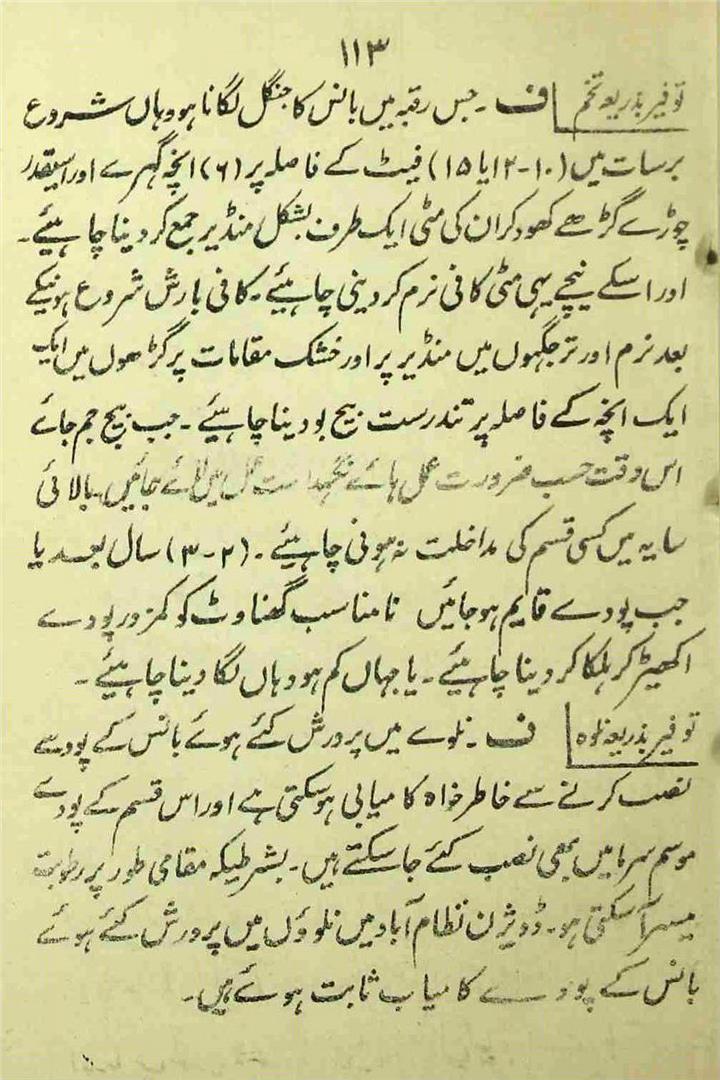 ۱۱۳
توفیر بذریعہ تخم ف ۔ جس رقبہ میں بانس کا جنگل لگانا ہو وہاں شروع
برسات میں (۱۰-۱۲ یا ۱۵) فیٹ کے فاصلہ پر (۶) انچہ گہرے اور اسیقدر
چوڑے گڑھے کھود کر ان کی مٹی ایک طرف بشکل منڈیر جمع کر دینا چاہئیے ۔
اور اسکے نیچے یہی مٹی کافی نرم کر دینی چاہئیے ۔ کافی بارش شروع ہونیکے
بعد نرم اور تر جگہوں میں منڈیر پر اور خشک مقامات پر گڑھوں میں ایک
ایک انچہ کے فاصلہ پر تندرست بیج بو دینا چاہئیے ۔ جب بیج جم جائے
اس وقت حسب ضرورت عمل ہائے نگہداشت عمل میں لائے جائیں ۔ بالائی
سایہ میں کسی قسم کی مداخلت نہ ہونی چاہئیے ۔ (۲-۳) سال بعد یا
جب پودے قایم ہو جائیں نامناسب گھناوٹ کو کمزور پودے
اکھیڑ کر ہلکا کر دینا چاہئیے ۔ یا جہاں کم ہو وہاں لگا دینا چاہئیے ۔
توفیر بذریعہ نلوہ ف ۔ نلوے میں پرورش کئے ہوئے بانس کے پودے
نصب کرنے سے خاطر خواہ کامیابی ہو سکتی ہے اور اس قسم کے پودے
موسم سرما میں بھی نصب کئے جا سکتے ہیں ۔ بشرطیکہ مقامی طور پر رطوبت
میسر آ سکتی ہو ۔ ڈویژن نظام آباد میں نلوؤں میں پرورش کئے ہوئے
بانس کے پودے کامیاب ثابت ہوئے ہیں ۔